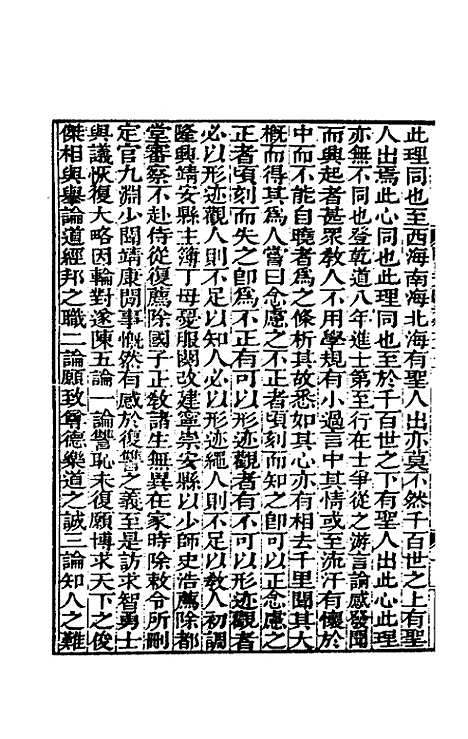 此理同也至西海南海北海有聖人出亦莫不然千百世之上有聖
人出焉此心同也此理同也至於千百世之下有聖人出此心此理
亦無不同也登乾道八年進士第至行在士爭從之游言論感發聞
而興起者甚衆教人不用學規有小過言中其情或至流汗有懷於
中而不能自曉者爲之條析其故悉如其心亦有相去千里聞其大
槪而得其爲人嘗曰念慮之不正者頃刻而知之卽可以正念慮之
正者頃刻而失之卽爲不正有可以形迹觀者有不可以形迹觀者
必以形迹觀人則不足以知人必以形迹繩人則不足以敎人初調
隆興靖安縣主簿丁母憂服闋改建寧崇安縣以少師史浩薦除都
堂審察不赴侍從復薦除國子正敎諸生無異在家時除敕令所刪
定官九淵少聞靖康間事慨然有感於復讐之義至是訪求智勇士
與議恢復大略因輪對遂陳五論一論讐恥未復願博求天下之俊
傑相與舉論道經邦之職二論願致尊德樂道之誠三論知人之難